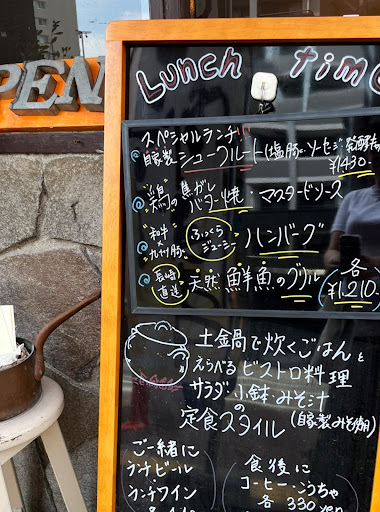 OPEN
Lunch time
スペシャルランチ!
自家製シュークルート(塩豚・ソーセージ・発酵キャ
¥1,430-
鶏の焦がしバター焼・マスタードソース
和牛×九州豚 ふっくらジューシー ハンバーグ
長崎直送 天然鮮魚のグリル
各¥1,210-
土鍋で炊くごはんと
えらべるビストロ料理
サラダ・小鉢・みそ汁
の
定食スタイル(自家製みそ使用)
ご一緒に
ランチビール
ランチワイン
食後に
コーヒー・こうちゃ
各330yen